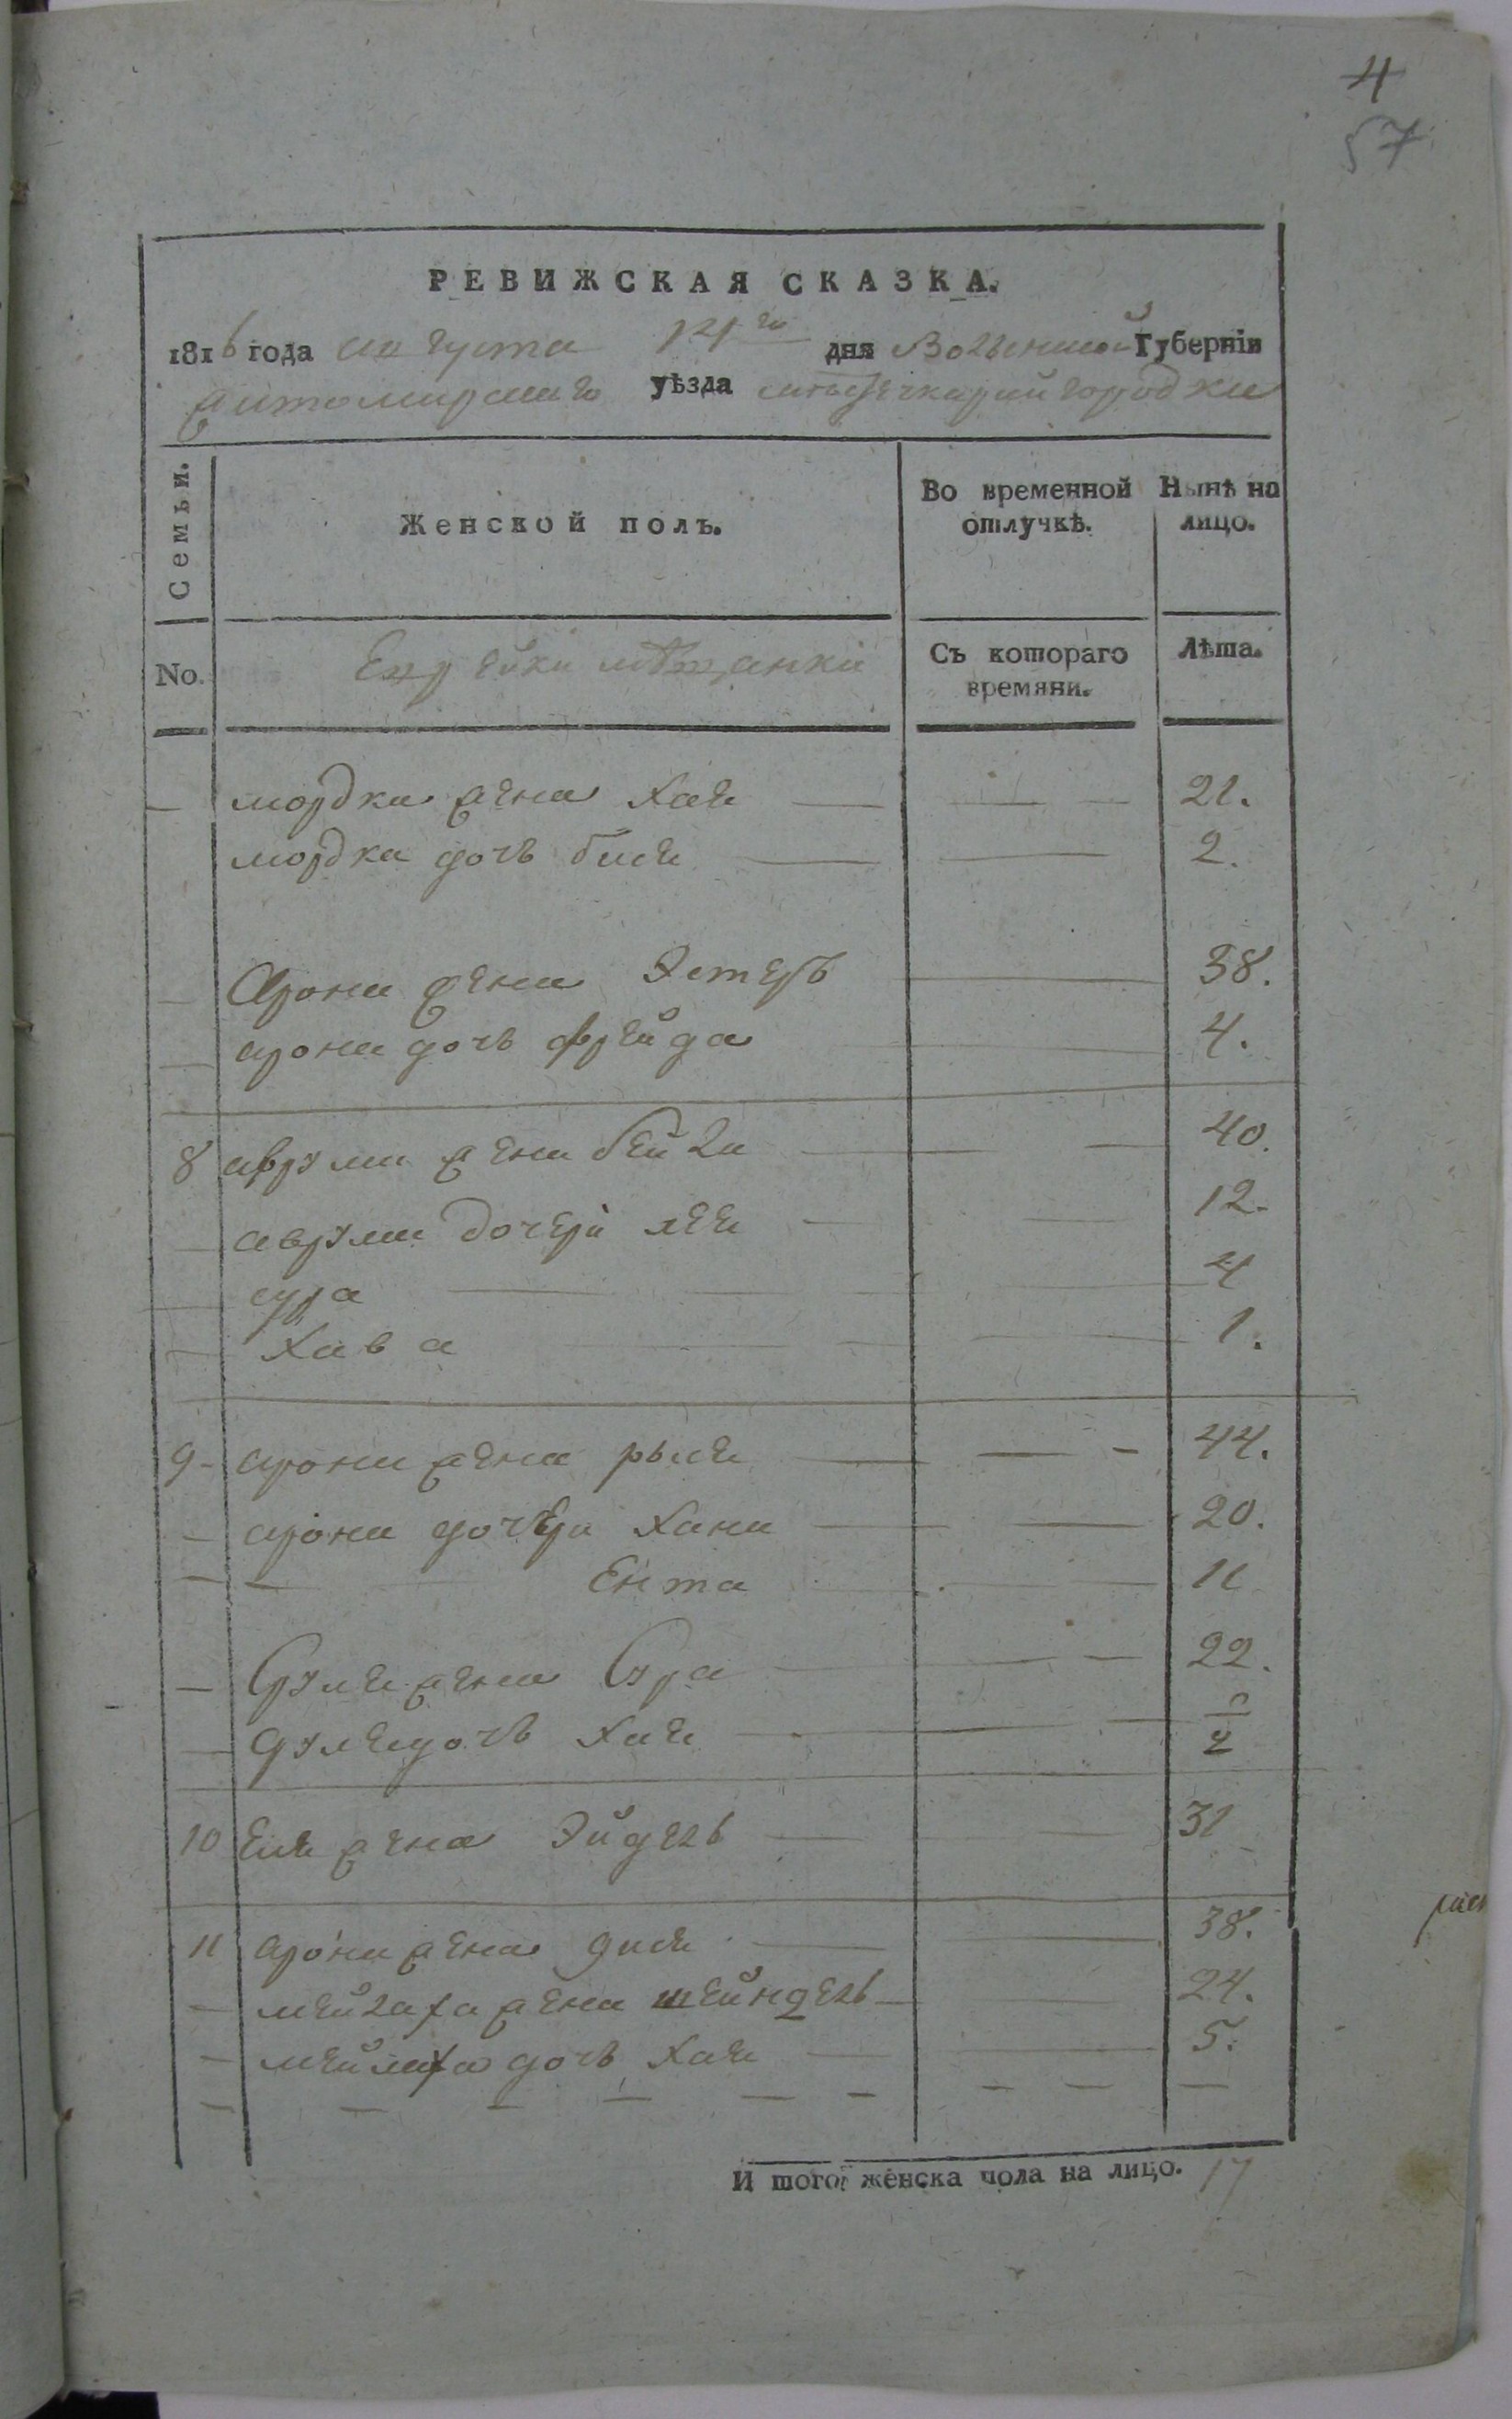 4
57
РЕВИЖСКАЯ СКАЗКА.
1816 года августа 14го дня Волынской Губернiи
Житомирскаго уѣзда местечка городки
Семьи.
Женской полъ.
Во временной отлучкѣ.
Нынѣ на лицо.
No.
Еврейки мѣщанки
Съ котораго времяни.
Лѣта.
— мордка жена хая — — 21.
мордка дочь бися — — 2.
— Арона жена Эстеръ — 38.
— арона дочь фрейда — 4.
8 аврума жена бейла — — 40.
— аврума дочери лея — — 12.
— сура — — — 4
— Хава — — — 1.
9 - арона жена рыся — — - 44.
— арона дочери хана — — 20.
— — — Ента — — 11
— Сруля жена Сура — — — 22.
— Сруля дочь хая — — — 1/2
10 жена Эйдель — — 31
11 арона жена дися — — 38.
— жена шейндель — — 24.
— дочь хая — — 5.
— — — — — — — — —
И того женска пола на лицо. 17